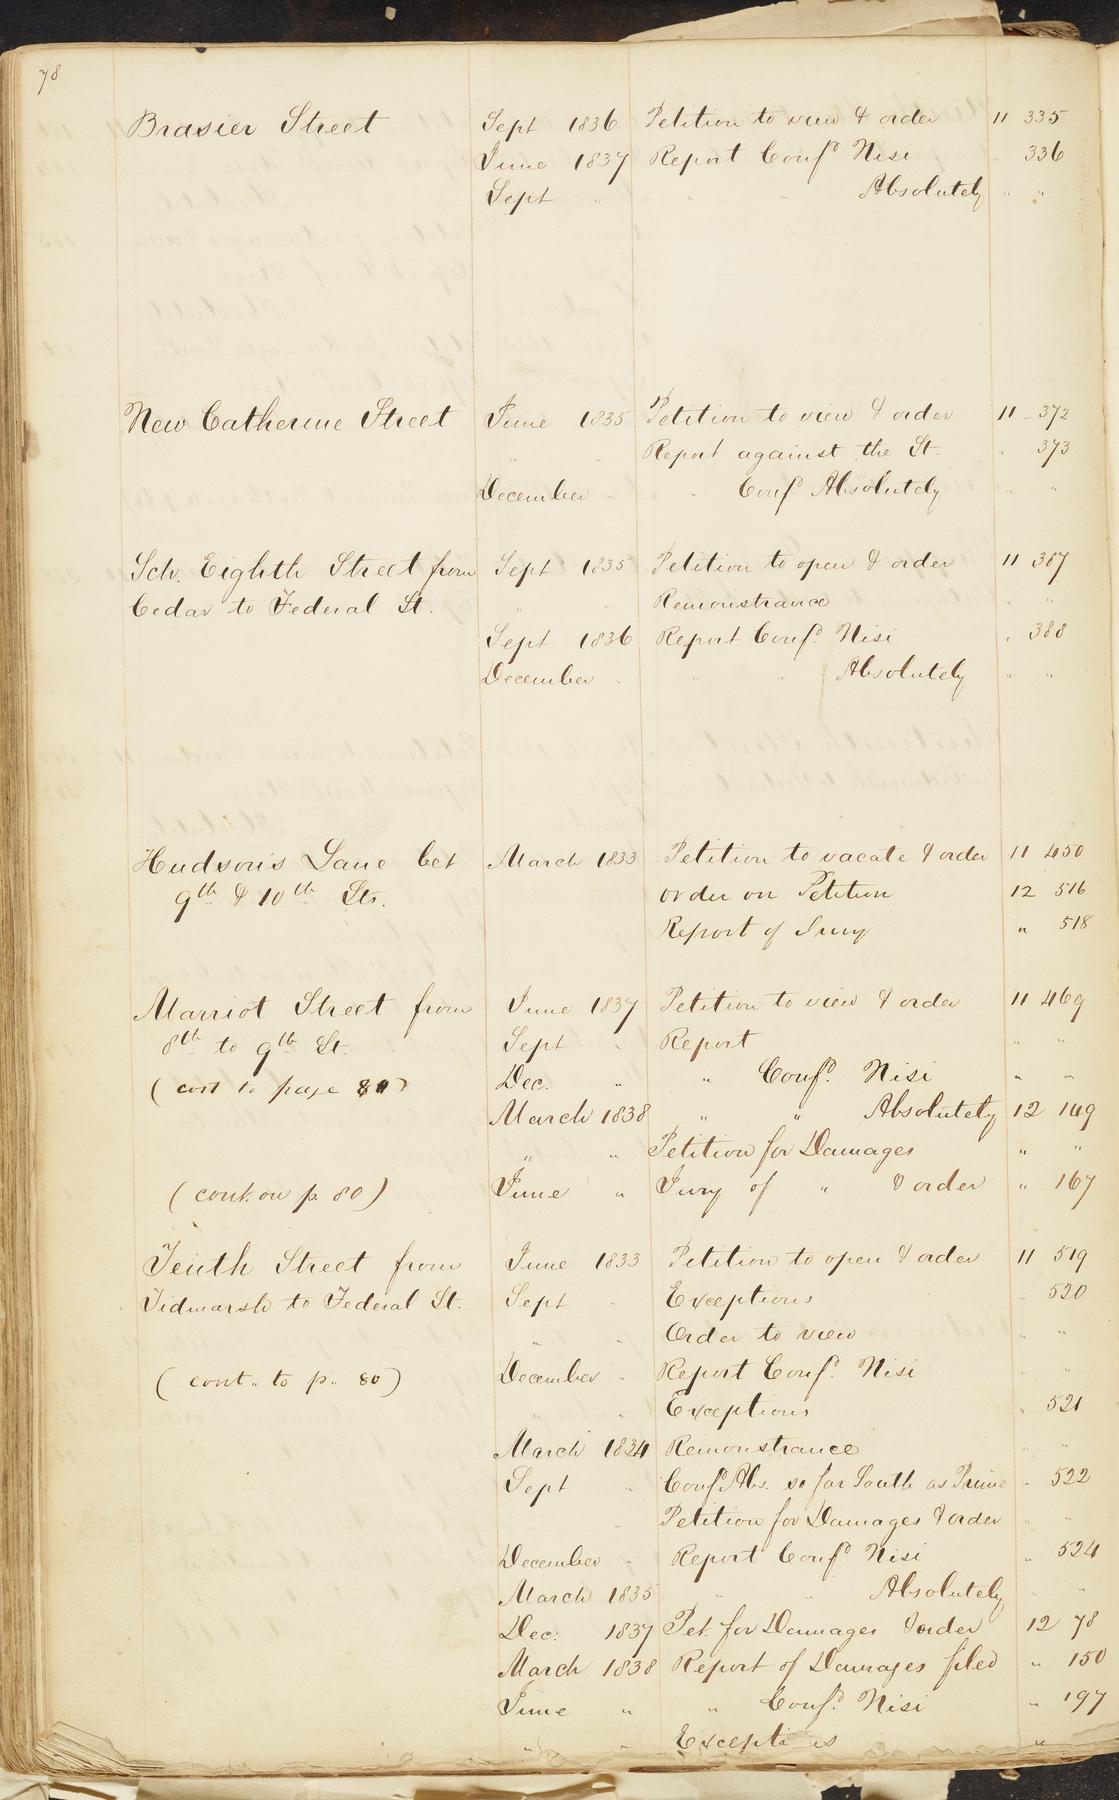 78
Brasier Street Sept 1836 Petition to view & order 11 335
June 1837 Report Conf.d Nisi " 336
Sept " " " Absolutely " "
New Catherine Street June 1835 Petition to view & order 11 372
" " Report against the St. " 373
December " " Conf.d Absolutely " "
Sch. Eighth Street from Sept 1835 Petition to open & order 11 387
Cedar to Federal St. " " Remonstrance " "
Sept 1836 Report Conf.d Nisi " 388
December " " " Absolutely " "
Hudson's Lane bet March 1833 Petition to vacate & order 11 450
9th & 10th Sts. order on Petition 12 516
Report of Jury " 518
Marriot Street from June 1837 Petition to view & order 11 469
8th to 9th St. Sept " Report " "
(cont to page 80) Dec. " " Conf.d Nisi " "
March 1838 " " Absolutely 12 149
" " Petition for Damages " "
(cont. on p. 80) June " Jury of " & order " 167
Tenth Street from June 1833 Petition to open & order 11 519
Tidmarsh to Federal St. Sept " Exceptions " 520
" " Order to view " "
(cont. to p. 80) December " Report Conf.d Nisi " "
" " Exceptions " 521
March 1834 Remonstrance " "
Sept " Conf.d Abs. so far South as Prime " 522
" " Petition for Damages & order " "
December " Report Conf.d Nisi " 524
March 1835 " " Absolutely " "
Dec: 1837 Pet. for Damages & order 12 78
March 1838 Report of Damages filed " 150
June " " Conf.d Nisi " 197
" " Excepti s "